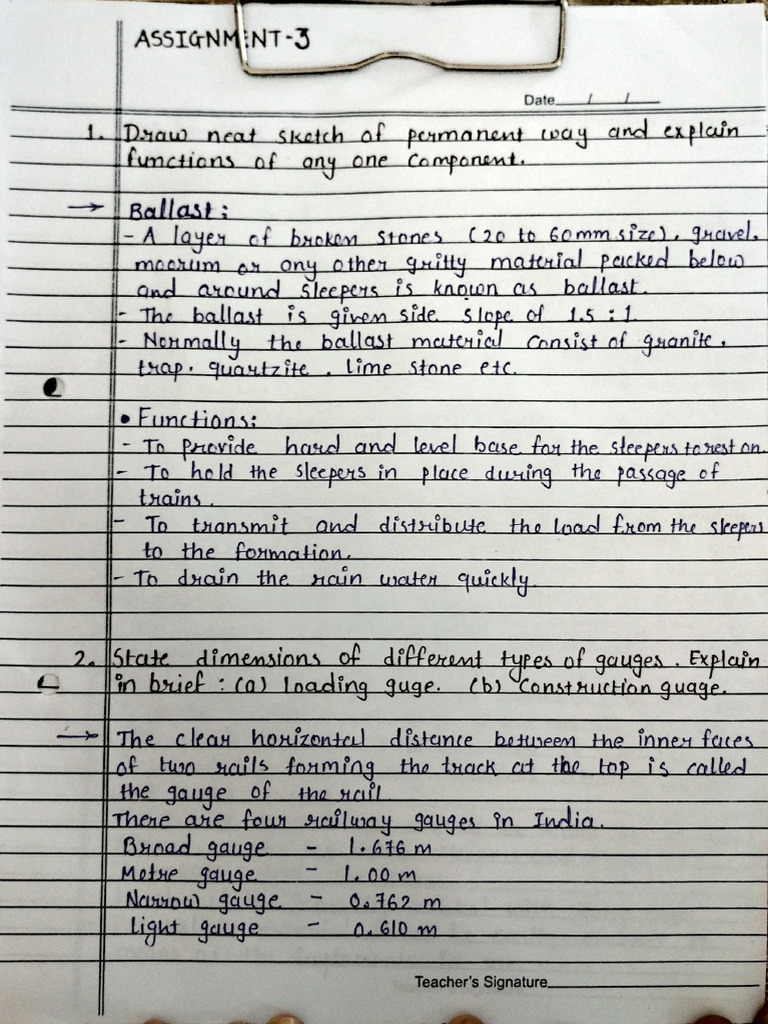 ASSIGNMENT-3
Date / /
1. Draw neat sketch of permanent way and explain
functions of any one component.
→ Ballast:
- A layer of broken stones (20 to 60mm size), gravel,
moorum or any other gritty material packed below
and around sleepers is known as ballast.
- The ballast is given side slope of 1.5 : 1
- Normally the ballast material consist of granite,
trap, quartzite, lime stone etc.
• Functions:
- To provide hard and level base for the sleepers to rest on.
- To hold the sleepers in place during the passage of
trains.
- To transmit and distribute the load from the sleepers
to the formation.
- To drain the rain water quickly.
2. State dimensions of different types of gauges. Explain
in brief : (a) loading guge. (b) Construction guage.
→ The clear horizontal distance between the inner faces
of two rails forming the track at the top is called
the gauge of the rail
There are four railway gauges in India.
Broad gauge - 1.676 m
Metre gauge - 1.00 m
Narrow gauge - 0.762 m
Light gauge - 0.610 m
Teacher's Signature